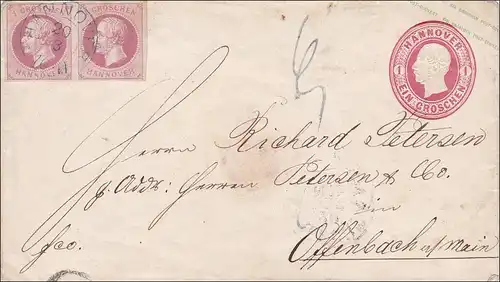 1 GROSCHEN
HANNOVER
HANNOVER
HANNOVER
20
3
HANNOVER
1 1
EIN GROSCHEN
Herrn Richard Petersen
p. Addr: Herren Petersen & Co.
in
fco. Offenbach a/Main